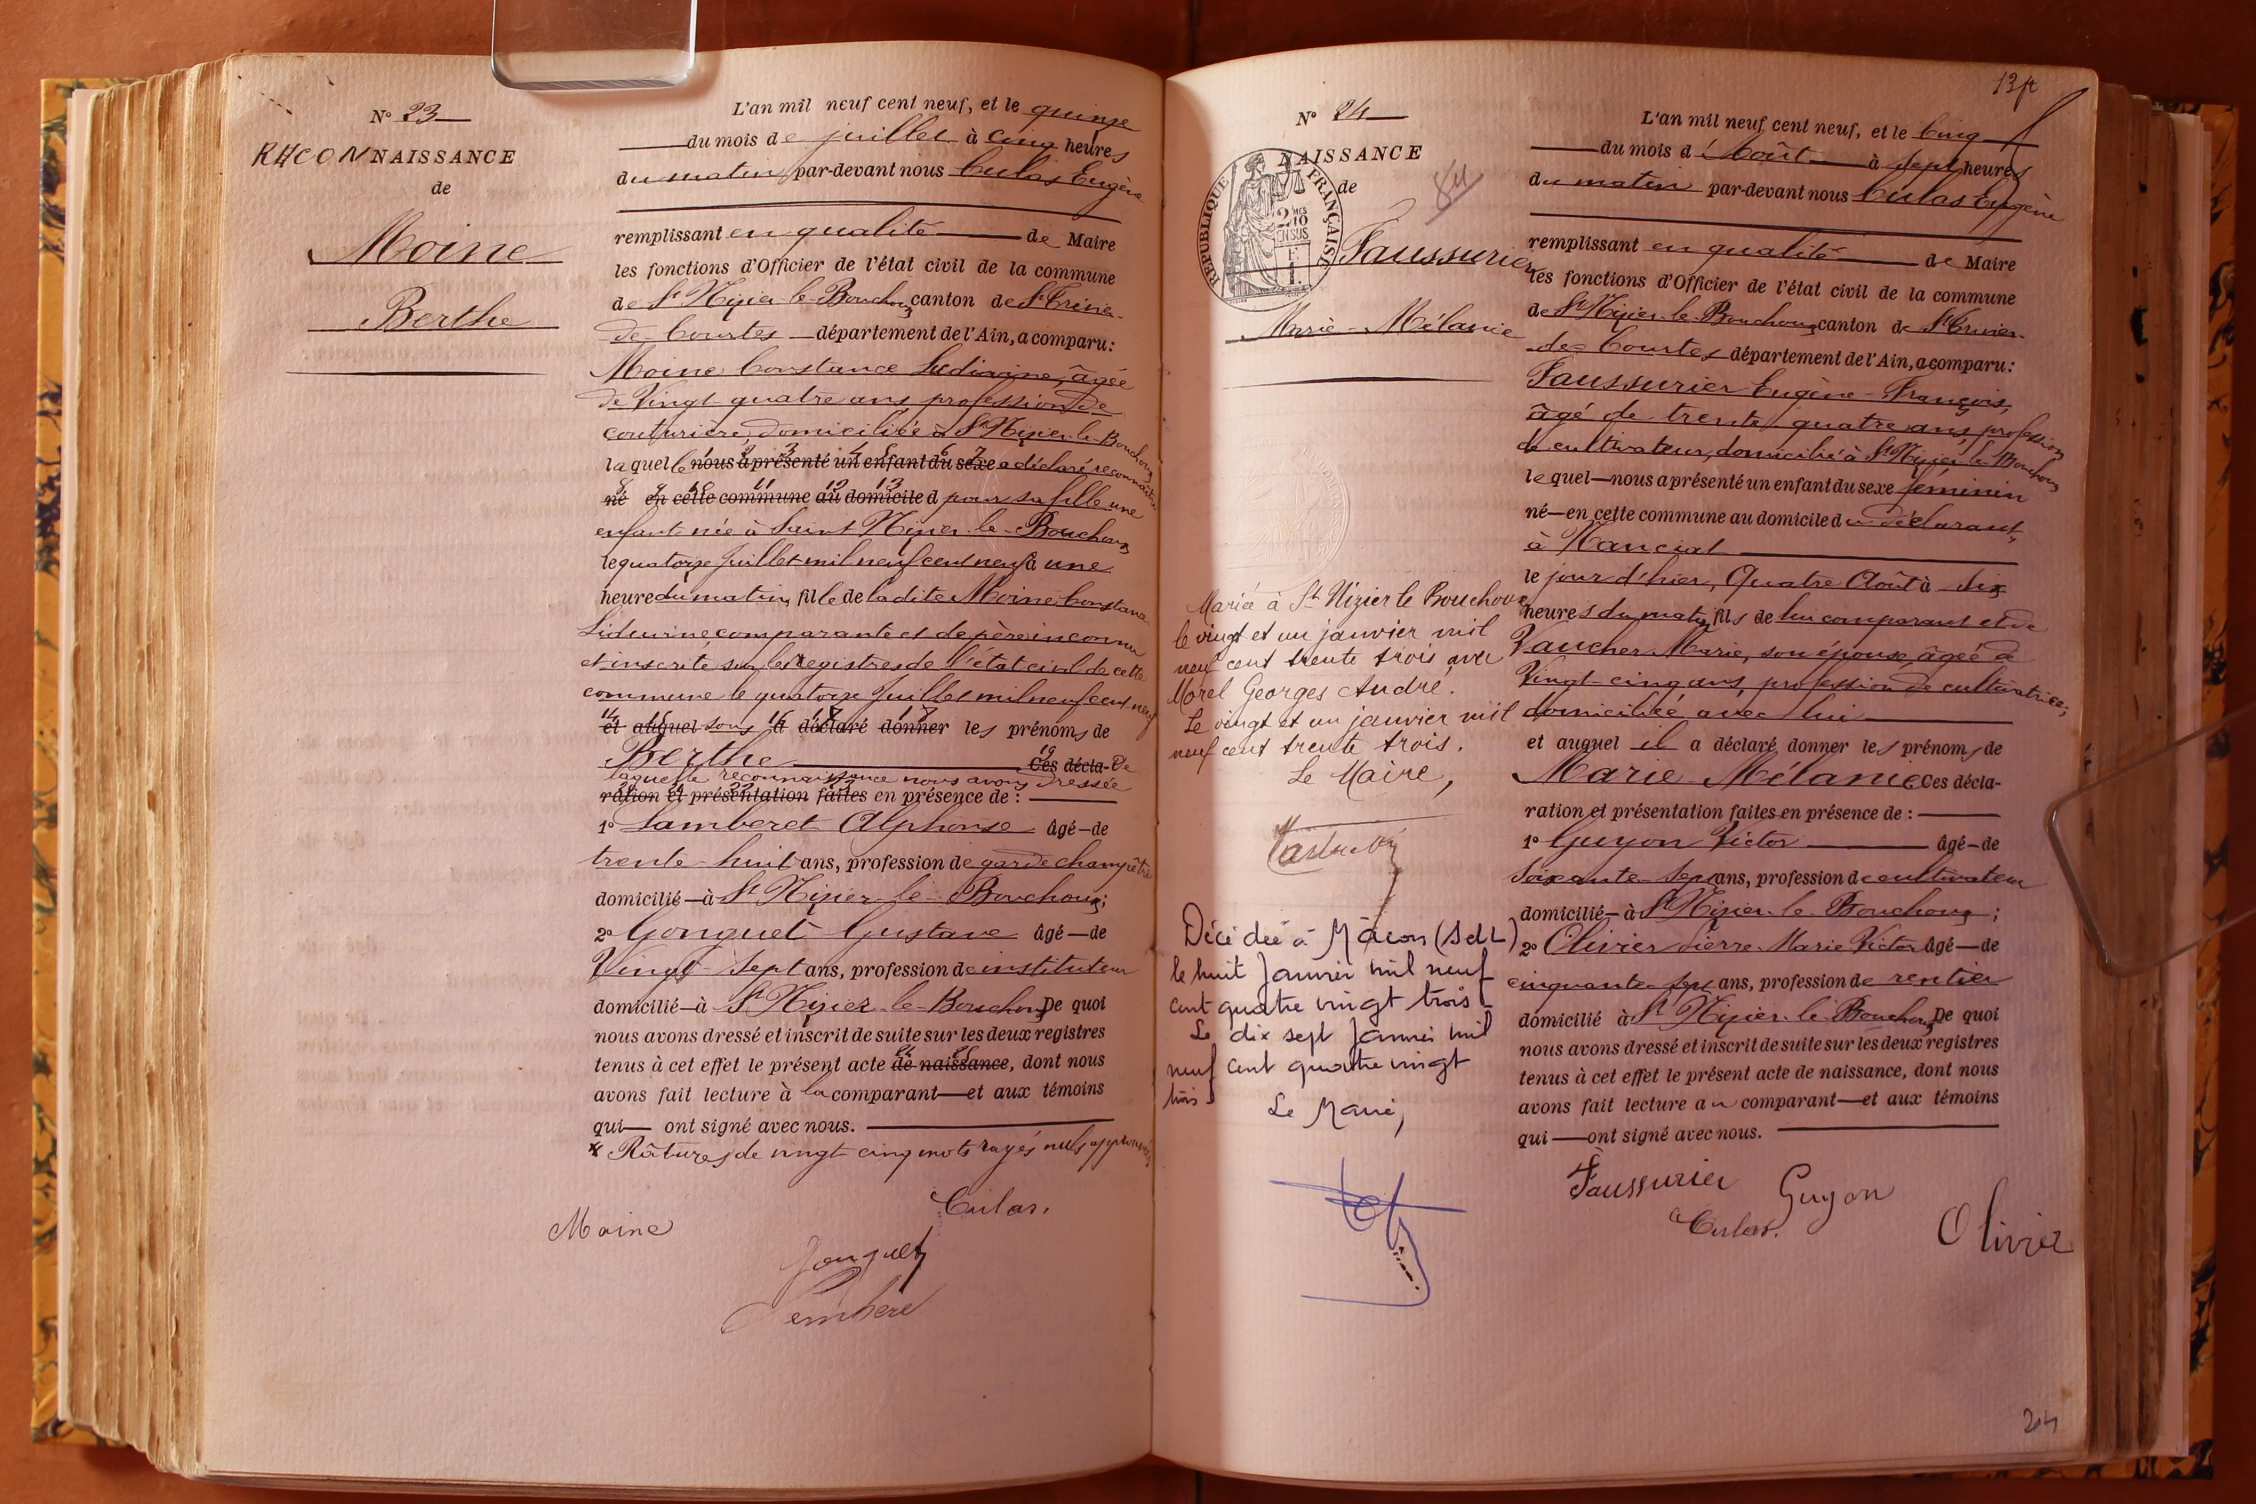 N° 23
RECONNAISSANCE
de
Moine
Berthe
L'an mil neuf cent neuf, et le quinze
du mois de juillet à cinq heures
du matin par-devant nous Culas Eugène
remplissant en qualité de Maire
les fonctions d'Officier de l'état civil de la commune
de St Nizier-le-Bouchoux canton de St Trivier-
de-Courtes département de l'Ain, a comparu:
Moine Constance Liduvine, âgée
de Vingt-quatre ans profession de
couturière, domiciliée à St Nizier-le-Bouchoux
laquelle nous a présenté un enfant du sexe a déclaré reconnaître
né en cette commune au domicile d pour sa fille une
enfant née à Saint Nizier-le-Bouchoux
le quatorze Juillet mil neuf cent neuf à une
heure du matin, fille de ladite Moine Constance
Liduvine comparante et de père inconnu
et inscrite sur les registres de l'état civil de cette
commune le quatorze Juillet mil neuf cent neuf
et auquel sous a déclaré donner les prénoms de
Berthe Ces décla- De
laquelle reconnaissance nous avons dressée
ration et présentation faites en présence de :
1° Lamberet Alphonse âgé-de
trente-huit ans, profession de garde champêtre
domicilié-à St Nizier-le-Bouchoux;
2° Gonguet Gustave âgé-de
Vingt-sept ans, profession de instituteur
domicilié-à St Nizier-le-Bouchoux De quoi
nous avons dressé et inscrit de suite sur les deux registres
tenus à cet effet le présent acte de naissance, dont nous
avons fait lecture à la comparant-et aux témoins
qui- ont signé avec nous.
Râtures de vingt-cinq mots rayés nuls approuvés
Culas.
Moine
Gonguet
N° 24
NAISSANCE
de
84
RÉPUBLIQUE FRANÇAISE
2 MES
10
EN SUS
1 F
Faussurier
Marie-Mélanie
Mariée à St Nizier le Bouchoux
le vingt et un janvier mil
neuf cent trente trois avec
Morel Georges André.
Le vingt et un janvier mil
neuf cent trente trois.
Le Maire,
Décédée à Mâcon (S et L)
le huit Janvier mil neuf
cent quatre vingt trois
Le dix sept Janvier mil
neuf cent quatre vingt
trois
Le Maire,
L'an mil neuf cent neuf, et le Cinq
du mois d'Août à sept heures
du matin par-devant nous Culas Eugène
remplissant en qualité de Maire
les fonctions d'Officier de l'état civil de la commune
de St Nizier-le-Bouchoux canton de St Trivier-
de-Courtes département de l'Ain, a comparu:
Faussurier Eugène-François,
âgé de trente-quatre ans, profession
de cultivateur, domicilié à St Nizier-le-Bouchoux
lequel-nous a présenté un enfant du sexe féminin
né-en cette commune au domicile du déclarant,
à Nancial
le jour d'hier, Quatre Août à dix
heures du matin, fils de lui comparant et de
Vaucher Marie, son épouse âgée de
Vingt-cinq ans, profession de cultivatrice,
domiciliée avec lui
et auquel il a déclaré donner les prénoms de
Marie Mélanie Ces décla-
ration et présentation faites en présence de :
1° Guyon Victor âgé-de
soixante-sept ans, profession de cultivateur
domicilié-à St Nizier-le-Bouchoux ;
2° Olivier Pierre Marie Victor âgé-de
cinquante-sept ans, profession de rentier
domicilié à St Nizier-le-Bouchoux De quoi
nous avons dressé et inscrit de suite sur les deux registres
tenus à cet effet le présent acte de naissance, dont nous
avons fait lecture au comparant-et aux témoins
qui-ont signé avec nous.
Faussurier Guyon
Culas. Olivier